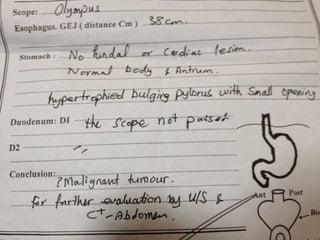 Scope: Olympus
Esophagus. GEJ ( distance Cm ) 38 cm.
Stomach : No fundal or cardiac lesion.
Normal body & Antrum.
hypertrophied bulging pylorus with small opening
Duodenum: D1 the scope not passed
D2 〃
Conclusion: ? Malignant tumour.
for further evaluation by U/S &
CT-Abdomen.
Ant Post